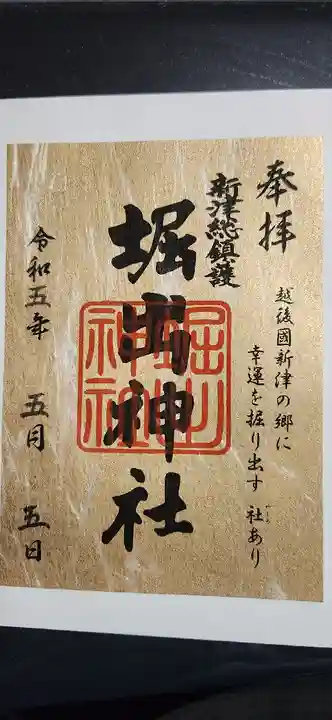 奉拝
越後國新津の郷に
幸運を掘り出す 社あり
やしろ
新津総鎮護
堀出神社
堀出
神社
令和五年 五月 五日